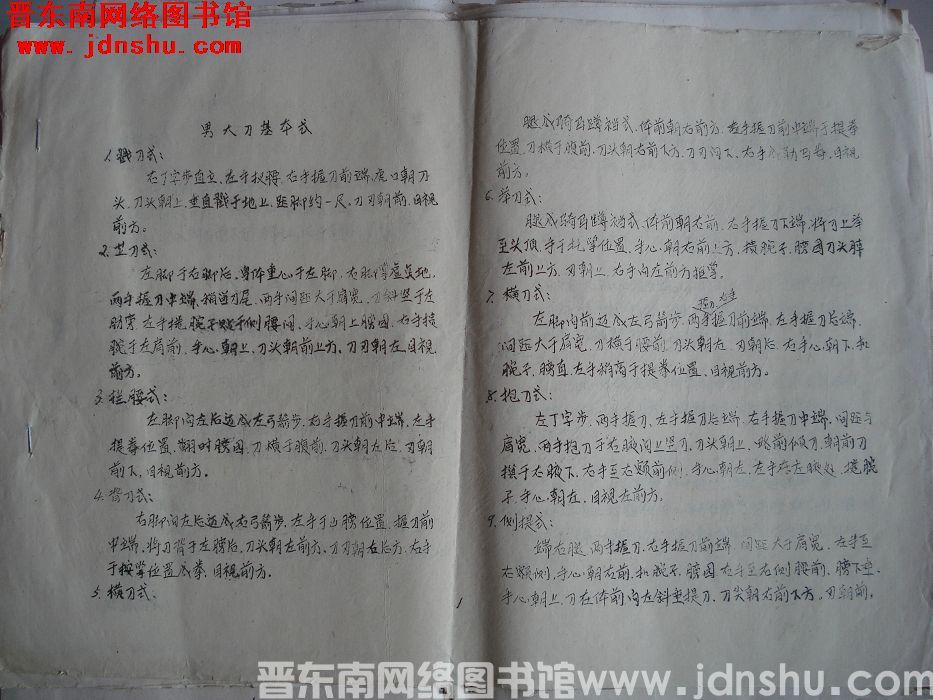 晋东南网络图书馆
www.jdnshu.com
男大刀基本式
1. 戳刀式：
右丁字步直立、左手扠腰、右手握刀前端、虎口朝刀
头、刀头朝上、垂直戳于地上、距脚约一尺、刀刃朝前、目视
前方。
2. 竖刀式：
左脚于右脚后、身体重心于左脚、右脚掌虚点地、
两手握刀中端、稍近刀尾、两手间距大于肩宽、刀斜竖于左
肋旁、左手提腕于侧腰间、手心朝上膀圆、右手提
腕于左肩前、手心朝上、刀头朝前上方、刀刃朝左、目视
前方。
3. 拦腰式：
左脚向左后迈成左弓箭步、右手握刀前中端、左手
提拳位置、翻肘膀圆、刀横于腹前、刀头朝左后、刃朝
前下、目视前方。
4. 背刀式：
右脚向左后迈成右弓箭步、左手于山膀位置、握刀前
中端、将刀背于左膀后、刀头朝左前方、刀刃朝右后方、右手
于按掌位置成拳、目视前方。
5. 横刀式：
1
腿成骑马蹲裆式、体前朝右前方、左手握刀前中端于提拳
位置、刀横于腹前、刀头朝右前下方、刀刃向下、右手成勒马拳、目视
前方。
6. 举刀式：
腿成骑马蹲裆式、体前朝右前、右手握刀下端、将刀上举
至头顶、手于托掌位置、手心朝右前上方、提腕子、膀圆刀头斜
左前上方、刃朝上、右手向左前方推掌。
7. 横刀式：
左脚向前迈成左弓箭步、两手握刀前端、左手握刀后端、
间距大于肩宽、刀横于腰前、刀头朝左、刃朝后、右手心朝下、扣
腕子、膀直、左手稍高于提拳位置、目视前方。
8. 抱刀式：
左丁字步、两手握刀、左手握刀后端、右手握刀中端、间距与
肩宽、两手抱刀于右腋间上竖刀、刀头朝上、朝前
于右腋下、右手至右额前侧、手心朝左、左手在左腋处、提腕
子、手心朝左、目视左前方。
9. 侧提式：
端右腿、两手握刀、右手握刀前端、间距大于肩宽、左手至
右额侧、手心朝右前、扣腕子、膀圆右手至右侧腰前、膀下垂、
手心朝上、刀在体前向左斜垂提刀、刀尖朝右前下方、刃朝前。
晋东南网络图书馆 www.jdnshu.com